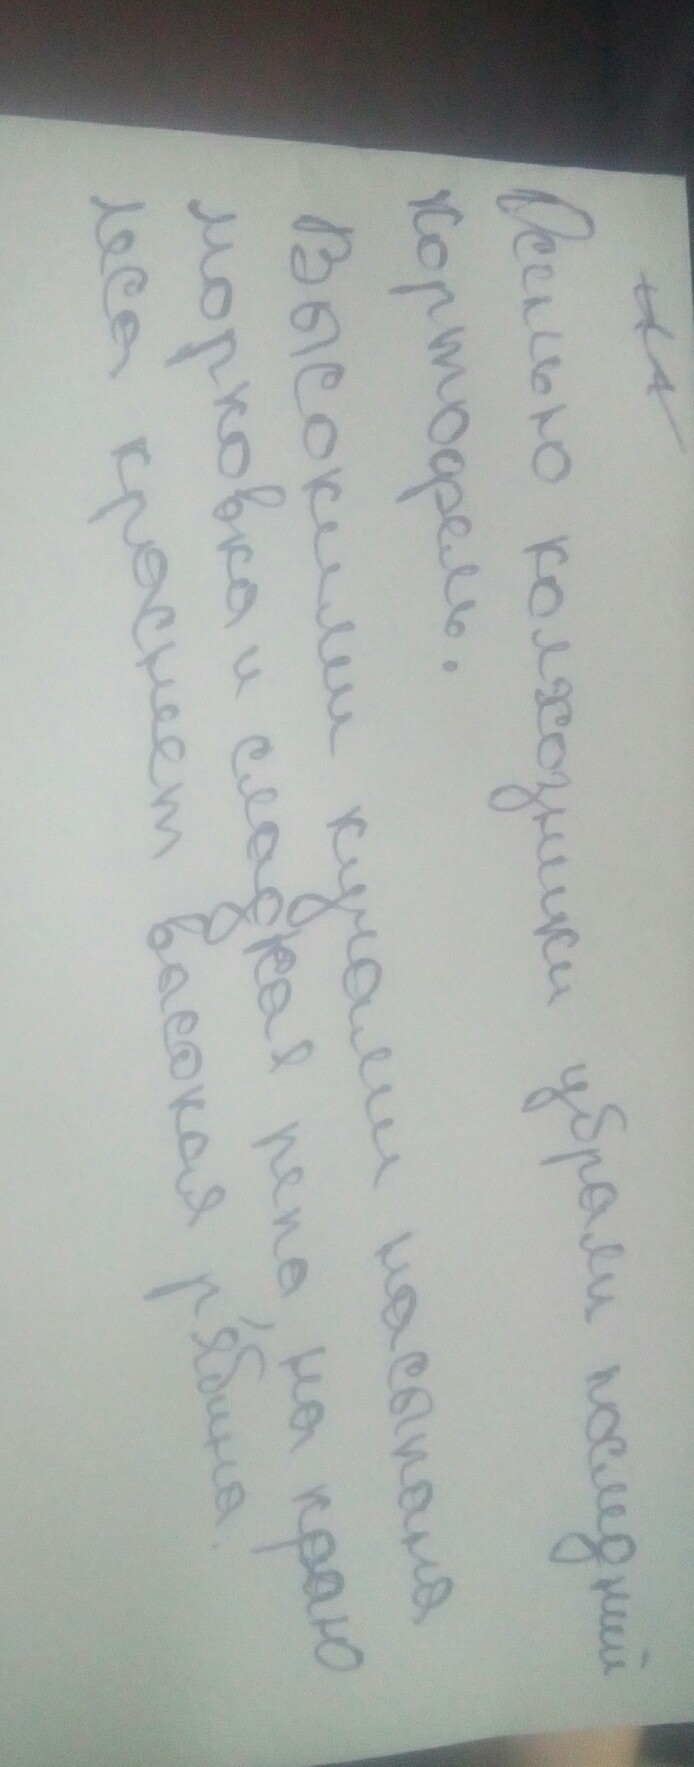 Осенью колхозники убрали последний
картофель.
Высокими кучами насыпана
морковка и сладкая репа, на краю
леса краснеет высокая рябина.